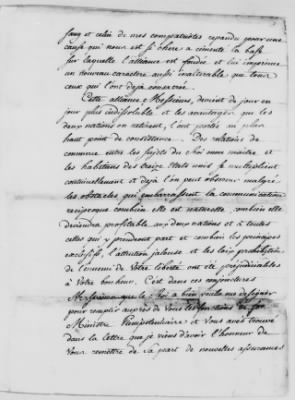 sang et celui de mes compatriotes repandu pour une
cause qui nous est si chere a cimenté la base
sur laquelle l'alliance est fondée et lui imprime
un nouveau caractere aussi inalterable que tous
ceux qui l'ont deja consacrée.
Cette alliance, Messieurs, devient de jour en
jour plus indissoluble et les avantages que les
deux nations en retirent, l'ont portée au plus
haut point de consistance. Des relations de
commerce entre les sujets du Roi mon maitre et
les habitans des treize Etats unis se multiplient
continuellement et deja l'on peut observer malgré
les obstacles qui embarrassent la communication
reciproque combien elle est naturelle, combien elle
deviendra profitable aux deux nations et à toutes
celles qui y prendront part et combien les privileges
exclusifs, l'attention jalouse et les loix prohibitives
de l'ennemi de Votre liberté ont été préjudiciables
à Votre bonheur. C'est dans ces conjonctures
Messieurs que le Roi a bien voulu me designer
pour remplir auprès de vous les fonctions de son
Ministre Plenipotentiaire et Vous avez trouvé
dans la lettre que je viens d'avoir l'honneur de
Vous remettre de sa part de nouvelles assurances